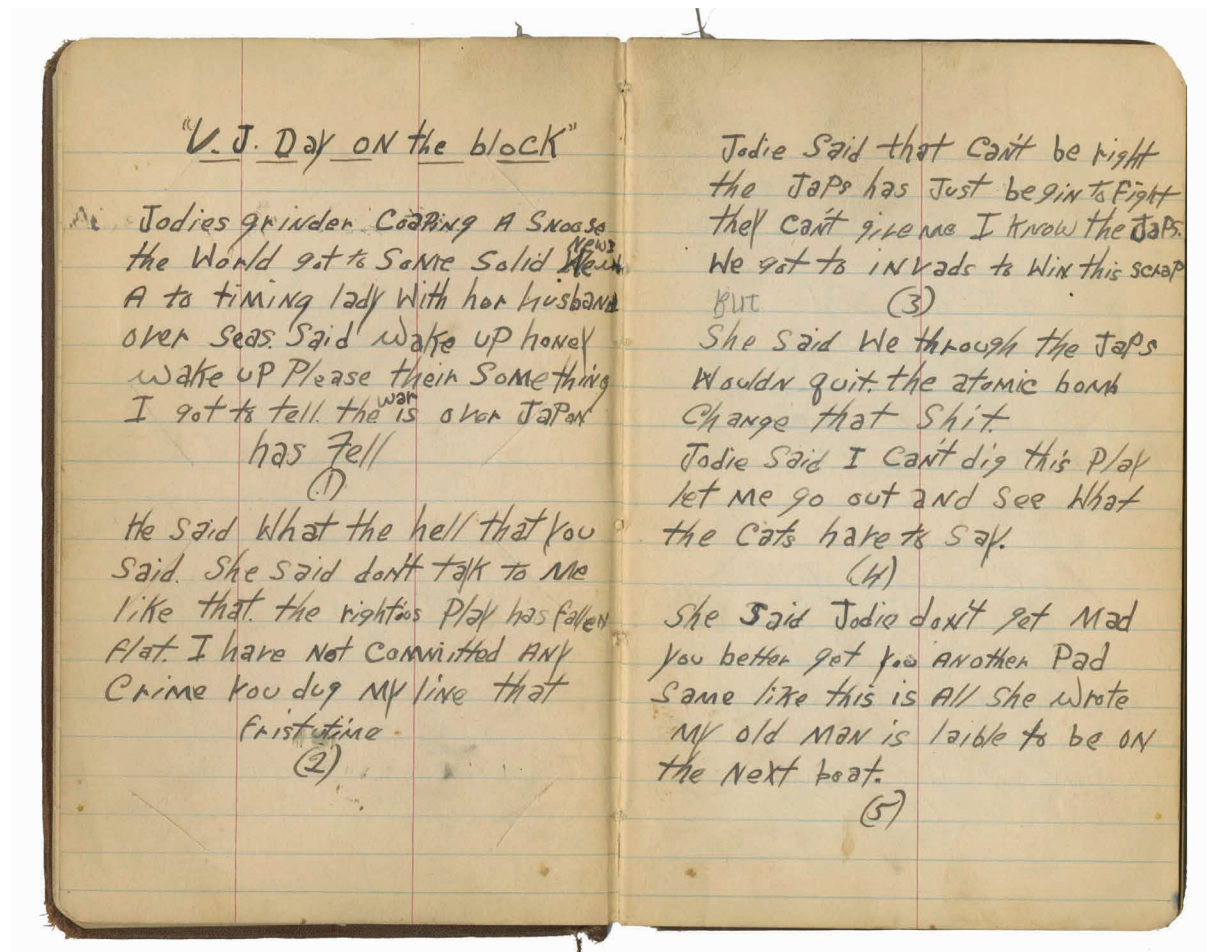 "V. J. Day on the block"
Jodies grinder Coaping A Snoose
the World got to Some Solid News
A to timing lady With her husband
over seas. Said wake up honey
wake up Please their Something
I got to tell. the war is over Japan
has Fell
(1)
He said What the hell that you
said. She said don't talk to me
like that. the rightios Play has fallen
flat. I have Not Committed Any
Crime You dug My line that
frist time
(2)
Jodie Said that Can't be right
the Japs has Just begin to Fight
they Can't give me I Know the Japs.
We got to invads to Win this scrap
But
(3)
She said We through the Japs
Wouldn quit. the atomic bomb
Change that Shit.
Jodie Said I Can't dig this Play
let me go out and see What
the Cats have to say.
(4)
She Said Jodie don't get Mad
you better get you Another Pad
Same like this is All she wrote
My old Man is laible to be on
the Next boat.
(5)